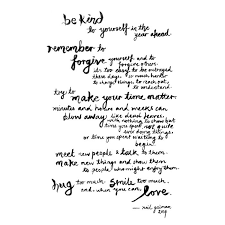 be kind
to yourself in the
year ahead.
remember to
forgive yourself, and to
forgive others.
it's too easy to be outraged
these days, so much harder
to change things, to reach out,
to understand.
try to
make your time matter:
minutes and hours and weeks can
blow away like dead leaves,
with nothing to show but
time you spent not quite
ever doing things,
or time you spent waiting to
begin.
meet new people & talk to them.
make new things and show them
to people who might enjoy them.
hug too much. smile too much.
and, when you can,
love.
— neil gaiman